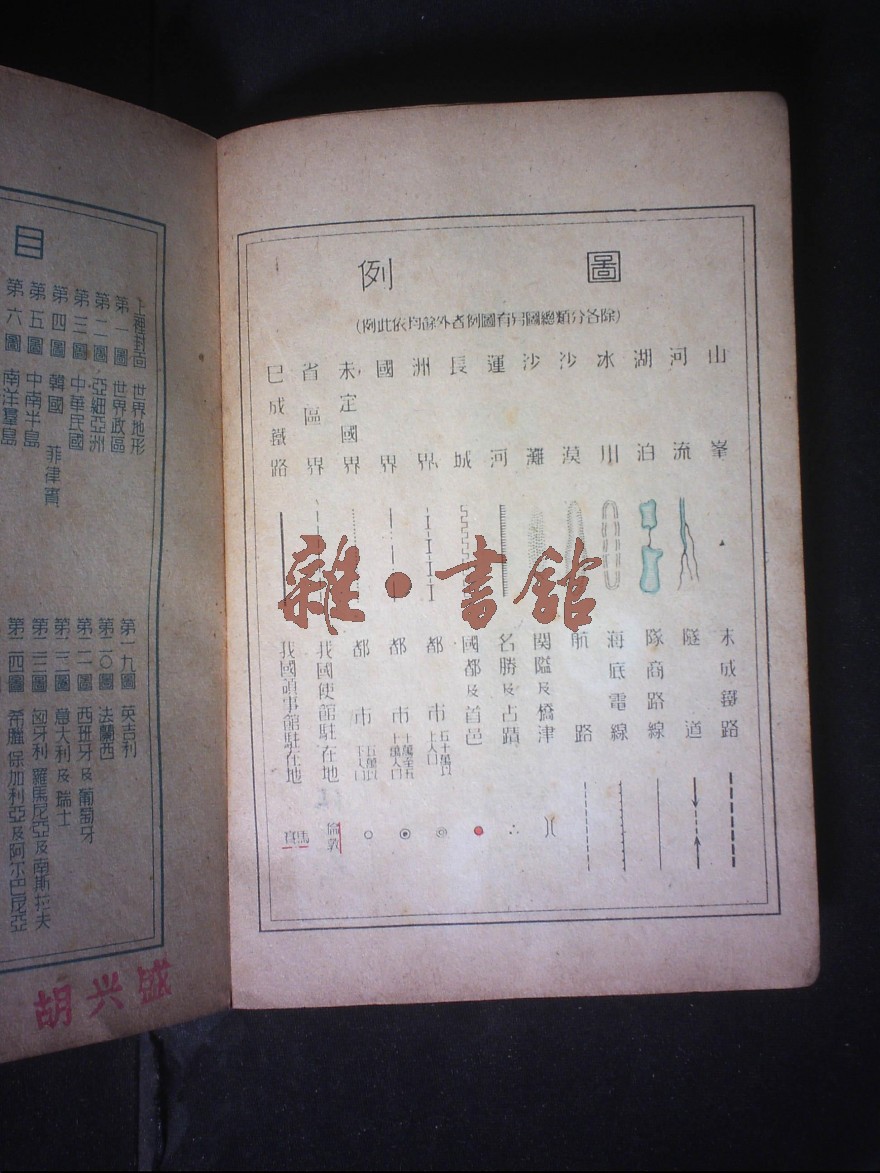 圖例
(除各分類總圖另有圖例者外餘均依此例)
山峯
河流
湖泊
冰川
沙漠
沙灘
運河
長城
洲界
國界
未定國界
省區界
已成鐵路
未成鐵路
隧道
隊商路線
海底電線
航路
關隘及橋津
名勝及古蹟
國都及首邑
都市五十萬以上人口
都市十萬至五十萬人口
都市五萬以下人口
我國使館駐在地
倫敦
我國領事館駐在地
馬賽
目
上裡封面 世界地形
第一圖 世界政區
第二圖 亞細亞洲
第三圖 中華民國
第四圖 韓國 菲律賓
第五圖 中南半島
第六圖 南洋羣島
第一九圖 英吉利
第二〇圖 法蘭西
第二一圖 西班牙及葡萄牙
第二二圖 意大利及瑞士
第二三圖 匈牙利羅馬尼亞及南斯拉夫
第二四圖 希臘保加利亞及阿尔巴尼亞
胡兴盛
雜·書館